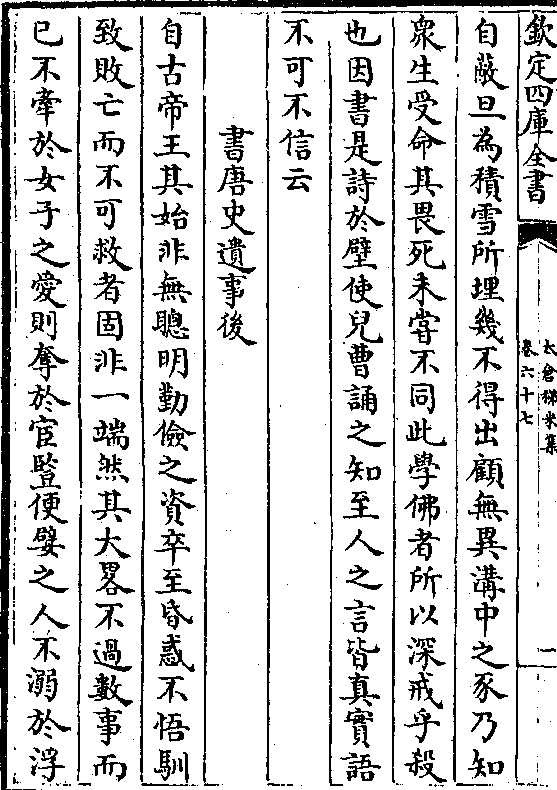 欽定四庫全書
太倉稊米集
卷六十七
一
自蔽旦為積雪所埋幾不得出顧無異溝中之豕乃知
衆生受命其畏死未嘗不同此學佛者所以深戒乎殺
也因書是詩於壁使兒曹誦之知至人之言皆真實語
不可不信云
書唐史遺事後
自古帝王其始非無聰明勤儉之資卒至昏惑不悟馴
致敗亡而不可救者固非一端然其大畧不過數事而
已不牽於女子之愛則奪於宦豎便嬖之人不溺於浮